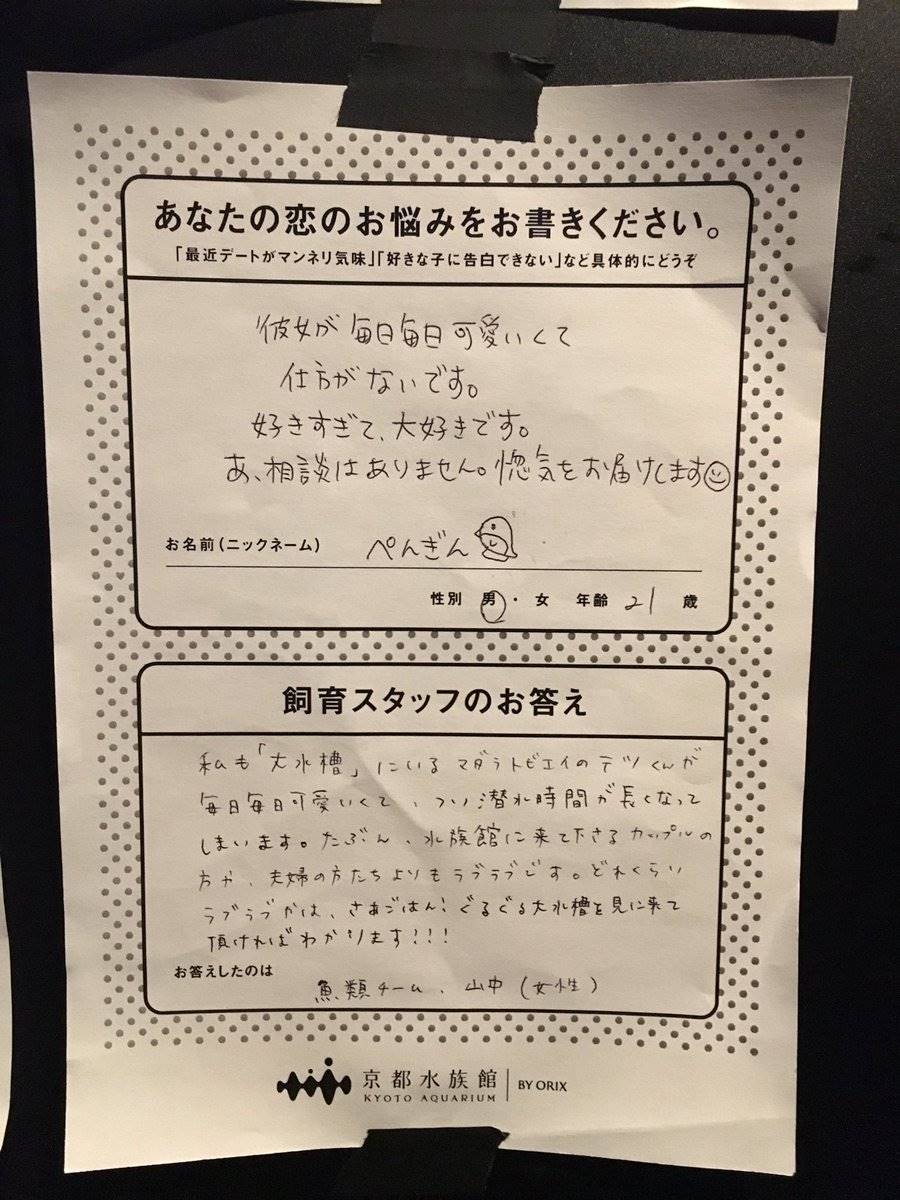 あなたの恋のお悩みをお書きください。
「最近デートがマンネリ気味」「好きな子に告白できない」など具体的にどうぞ
彼女が毎日毎日可愛いくて
仕方がないです。
好きすぎて、大好きです。
あ、相談はありません。惚気をお届けします
お名前(ニックネーム) ぺんぎん
性別 男・女 年齢 21 歳
飼育スタッフのお答え
私も「大水槽」にいるマダラトビエイのテツくんが
毎日毎日可愛いくて、つい潜水時間が長くなって
しまいます。たぶん、水族館に来て下さるカップルの
方や、夫婦の方たちよりもラブラブです。どれくらい
ラブラブかは、さあごはん!ぐるぐる大水槽を見に来て
頂ければわかります!!!
お答えしたのは
魚類チーム、山中(女性)
京都水族館 BY ORIX
KYOTO AQUARIUM